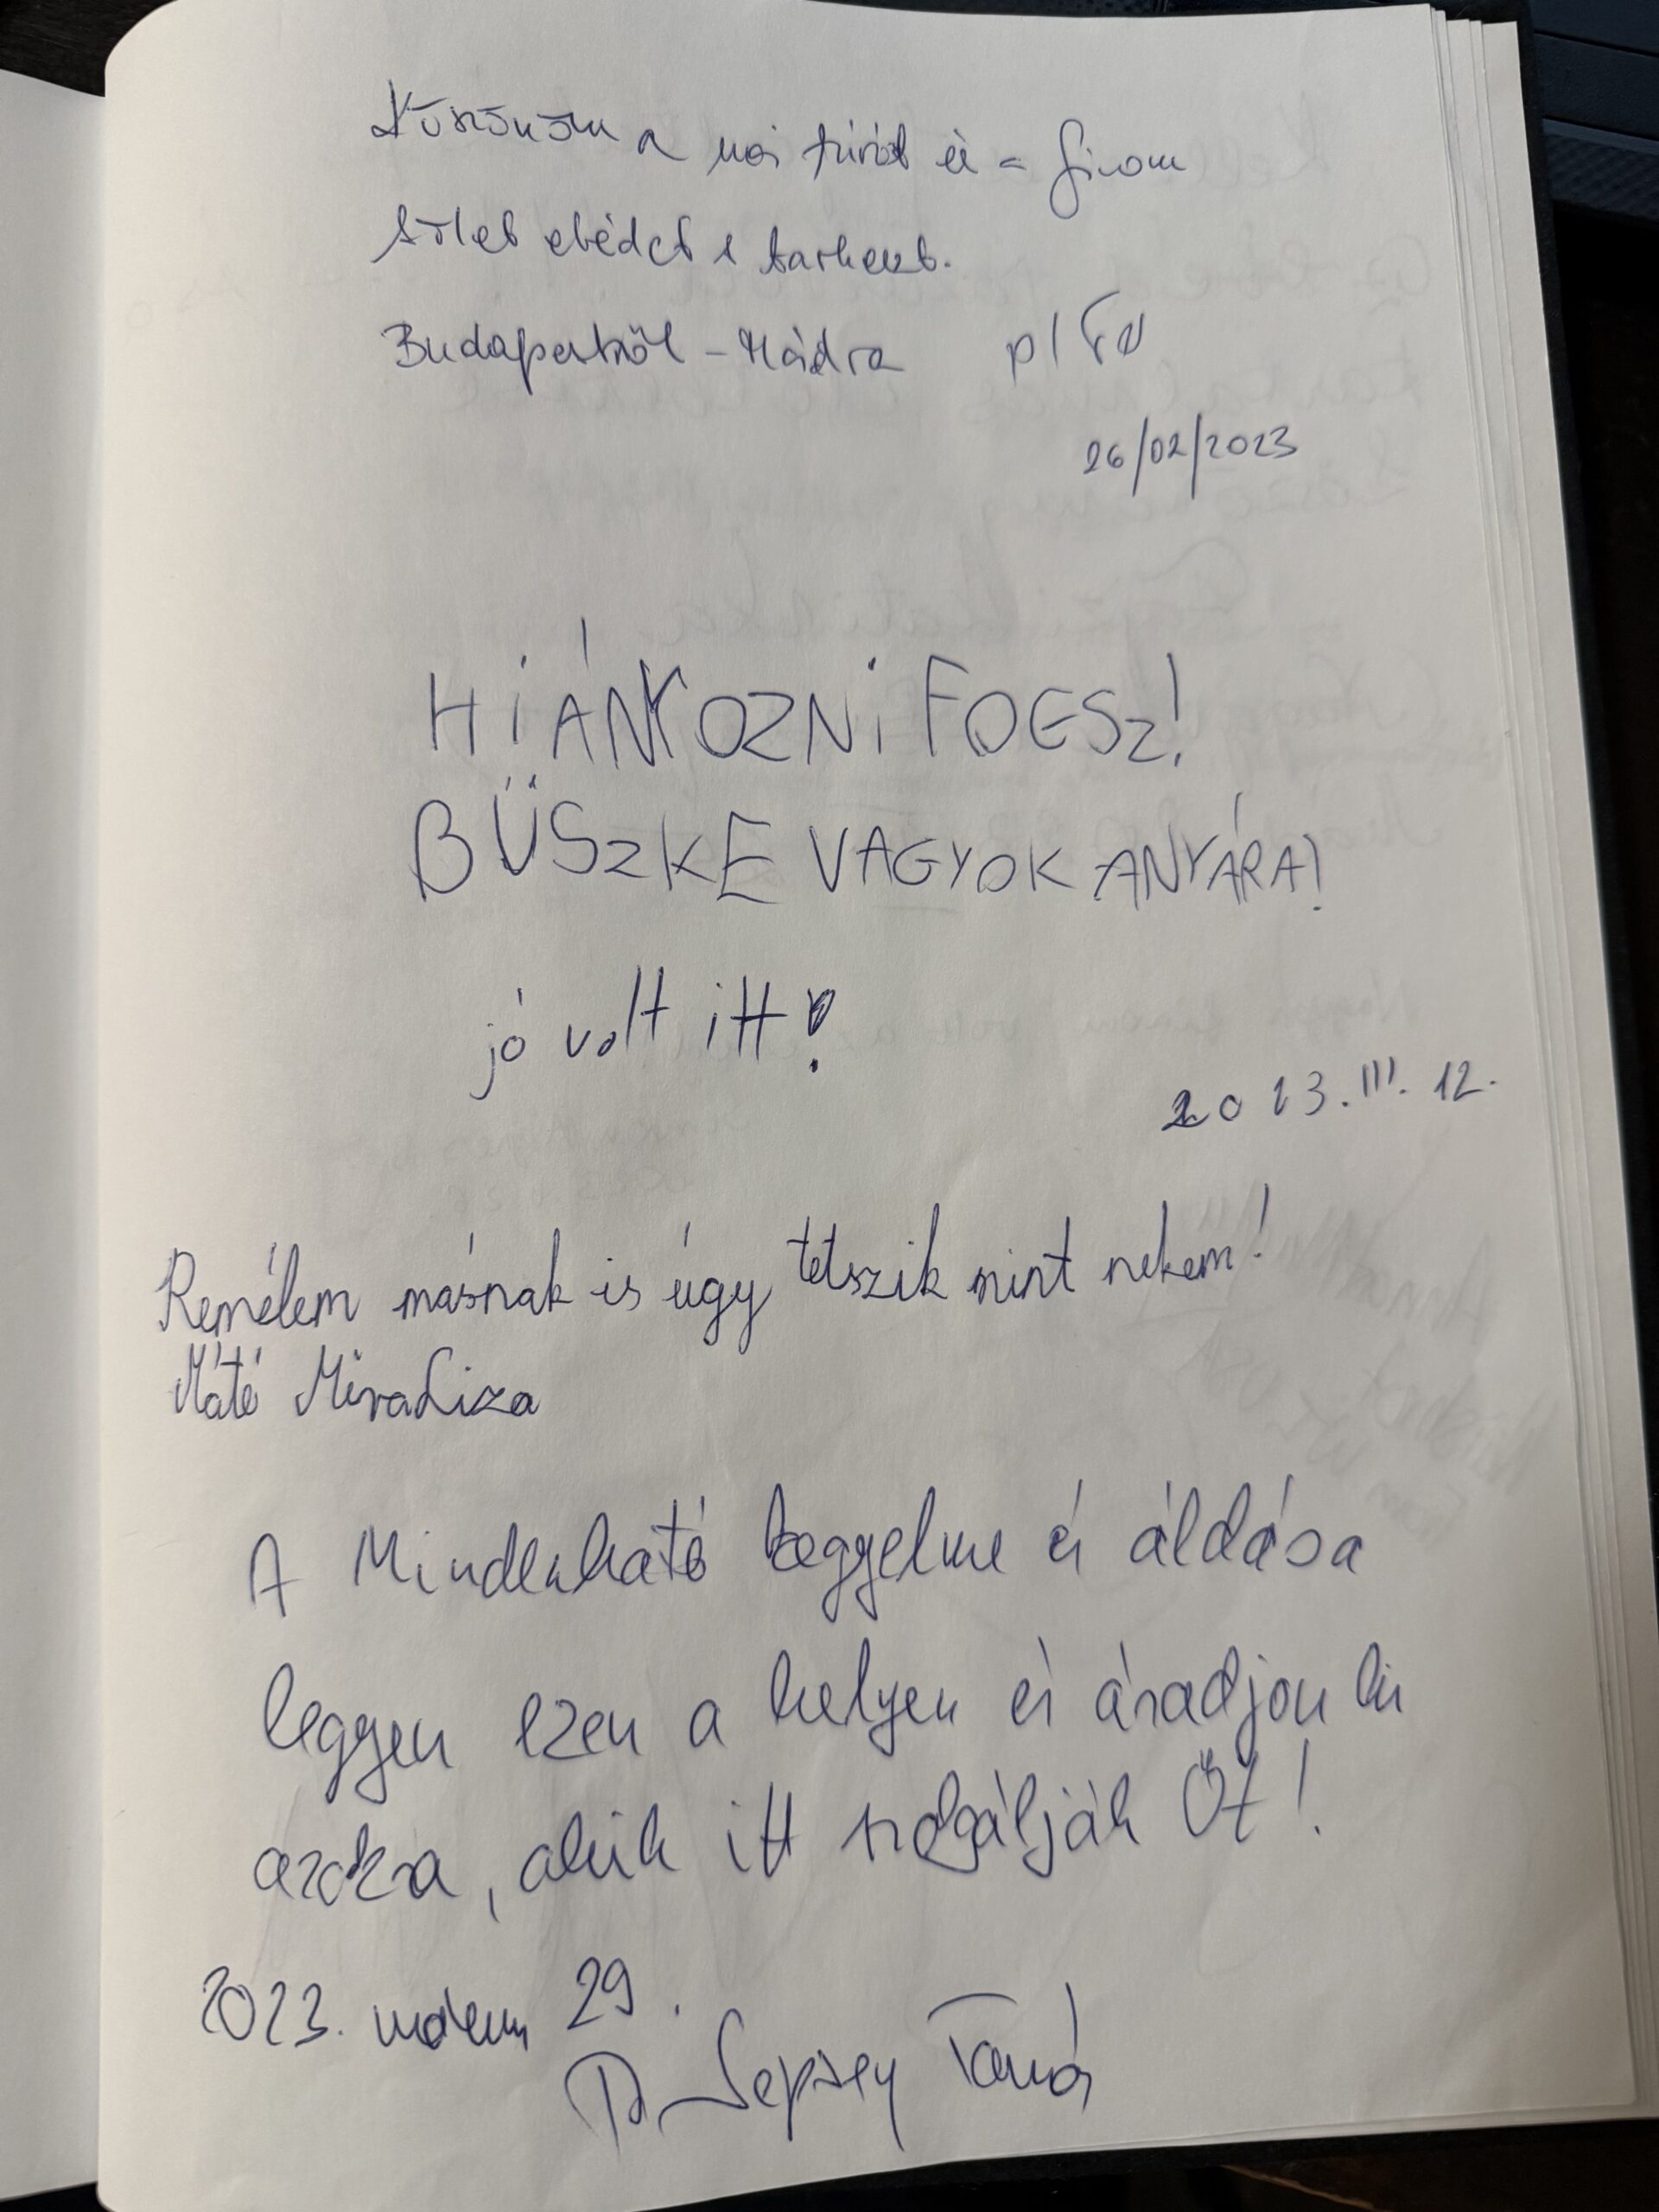 Köszönöm a mai túrát és a finom
sólet ebédet
Budapestről - Mádra
26/02/2023
HiÁNYOZNi FOGSz!
BÜSzKE VAGYOK ANYÁRA!
jó volt itt!
2023. III. 12.
Remélem másnak is úgy tetszik mint nekem!
Máté Mira Liza
A Mindenható kegyelme és áldása
legyen ezen a helyen és áradjon ki
azokra, akik itt szolgálják Őt!
2023. március 29.
Dr Sepsey Tamás